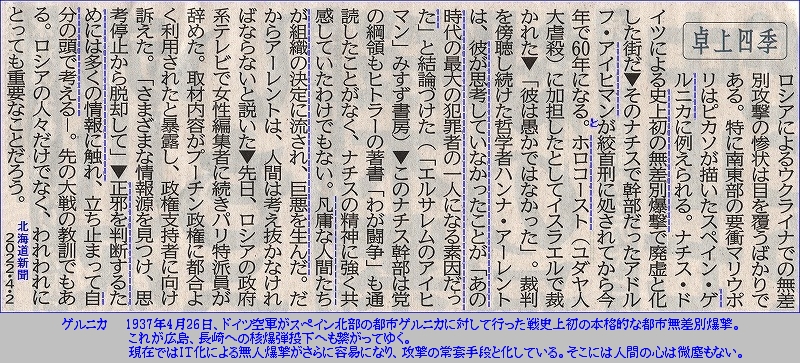 卓上四季
ロシアによるウクライナでの無差
別攻撃の惨状は目を覆うばかりで
ある。特に南東部の要衝マリウポ
リはピカソが描いたスペイン・ゲ
ルニカに例えられる。ナチス・ド
イツによる史上初の無差別爆撃で廃虚と化
した街だ▼そのナチスで幹部だったアドル
フ・アイヒマンが絞首刑に処されてから今
年で60年になる。ホロコースト(ユダヤ人
と
大虐殺)に加担したとしてイスラエルで裁
かれた▼「彼は愚かではなかった」。裁判
を傍聴し続けた哲学者ハンナ・アーレント
は、彼が思考していなかったことが「あの
時代の最大の犯罪者の一人になる素因だっ
た」と結論づけた(「エルサレムのアイヒ
マン」みすず書房)▼このナチス幹部は党
の綱領もヒトラーの著書「わが闘争」も通
読したことがなく、ナチスの精神に強く共
感していたわけでもない。凡庸な人間たち
が組織の決定に流され、巨悪を生んだ。だ
からアーレントは、人間は考え抜かなけれ
ばならないと説いた▼先日、ロシアの政府
系テレビで女性編集者に続きパリ特派員が
辞めた。取材内容がプーチン政権に都合よ
く利用されたと暴露し、政権支持者に向け
訴えた。「さまざまな情報源を見つけ、思
考停止から脱却して」▼正邪を判断するた
めには多くの情報に触れ、立ち止まって自
分の頭で考える―。先の大戦の教訓でもあ
る。ロシアの人々だけでなく、われわれに
とっても重要なことだろう。
北海道新聞
2022・4・2
ゲルニカ　1937年4月26日、ドイツ空軍がスペイン北部の都市ゲルニカに対して行った戦史上初の本格的な都市無差別爆撃。
これが広島、長崎への核爆弾投下へも繋がってゆく。
現在ではIT化による無人爆撃がさらに容易になり、攻撃の常套手段と化している。そこには人間の心は微塵もない。